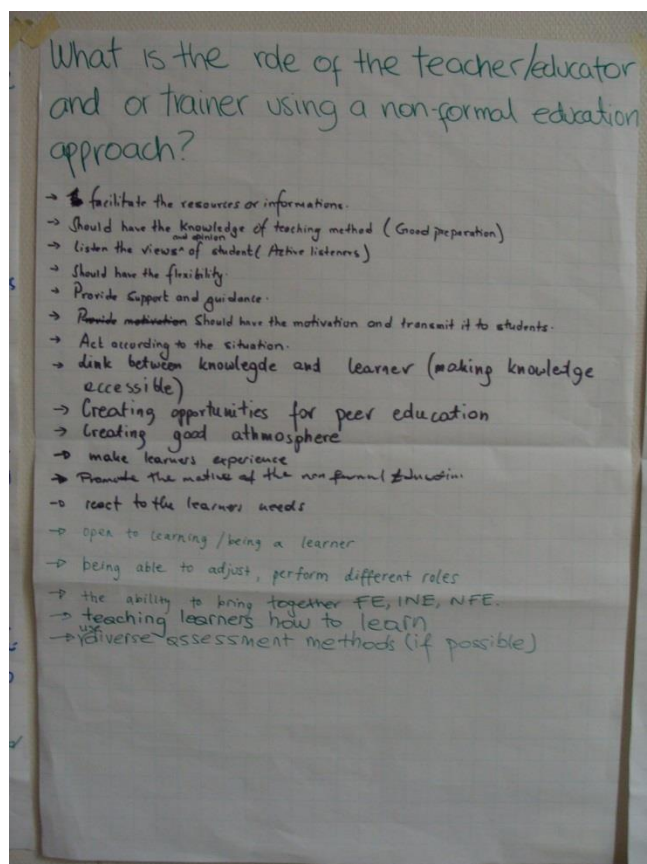 What is the role of the teacher/educator
and or trainer using a non-formal education
approach?
→ facilitate the resources or informations.
→ Should have the knowledge of teaching method (Good preparation)
and opinion
→ Listen the views^ of student (Active listeners)
→ Should have the flexibility.
→ Provide support and guidance.
→ Provide motivation Should have the motivation and transmit it to students.
→ Act according to the situation.
→ Link between knowlegde and learner (making knowledge
accessible)
→ Creating opportunities for peer education
→ Creating good athmosphere
→ make learners experience
→ Promote the motive of the non formal Education.
→ react to the learners needs
→ open to learning/being a learner
→ being able to adjust, perform different roles
→ the ability to bring together FE, INE, NFE.
→ teaching learners how to learn
→ use diverse assessment methods (if possible)